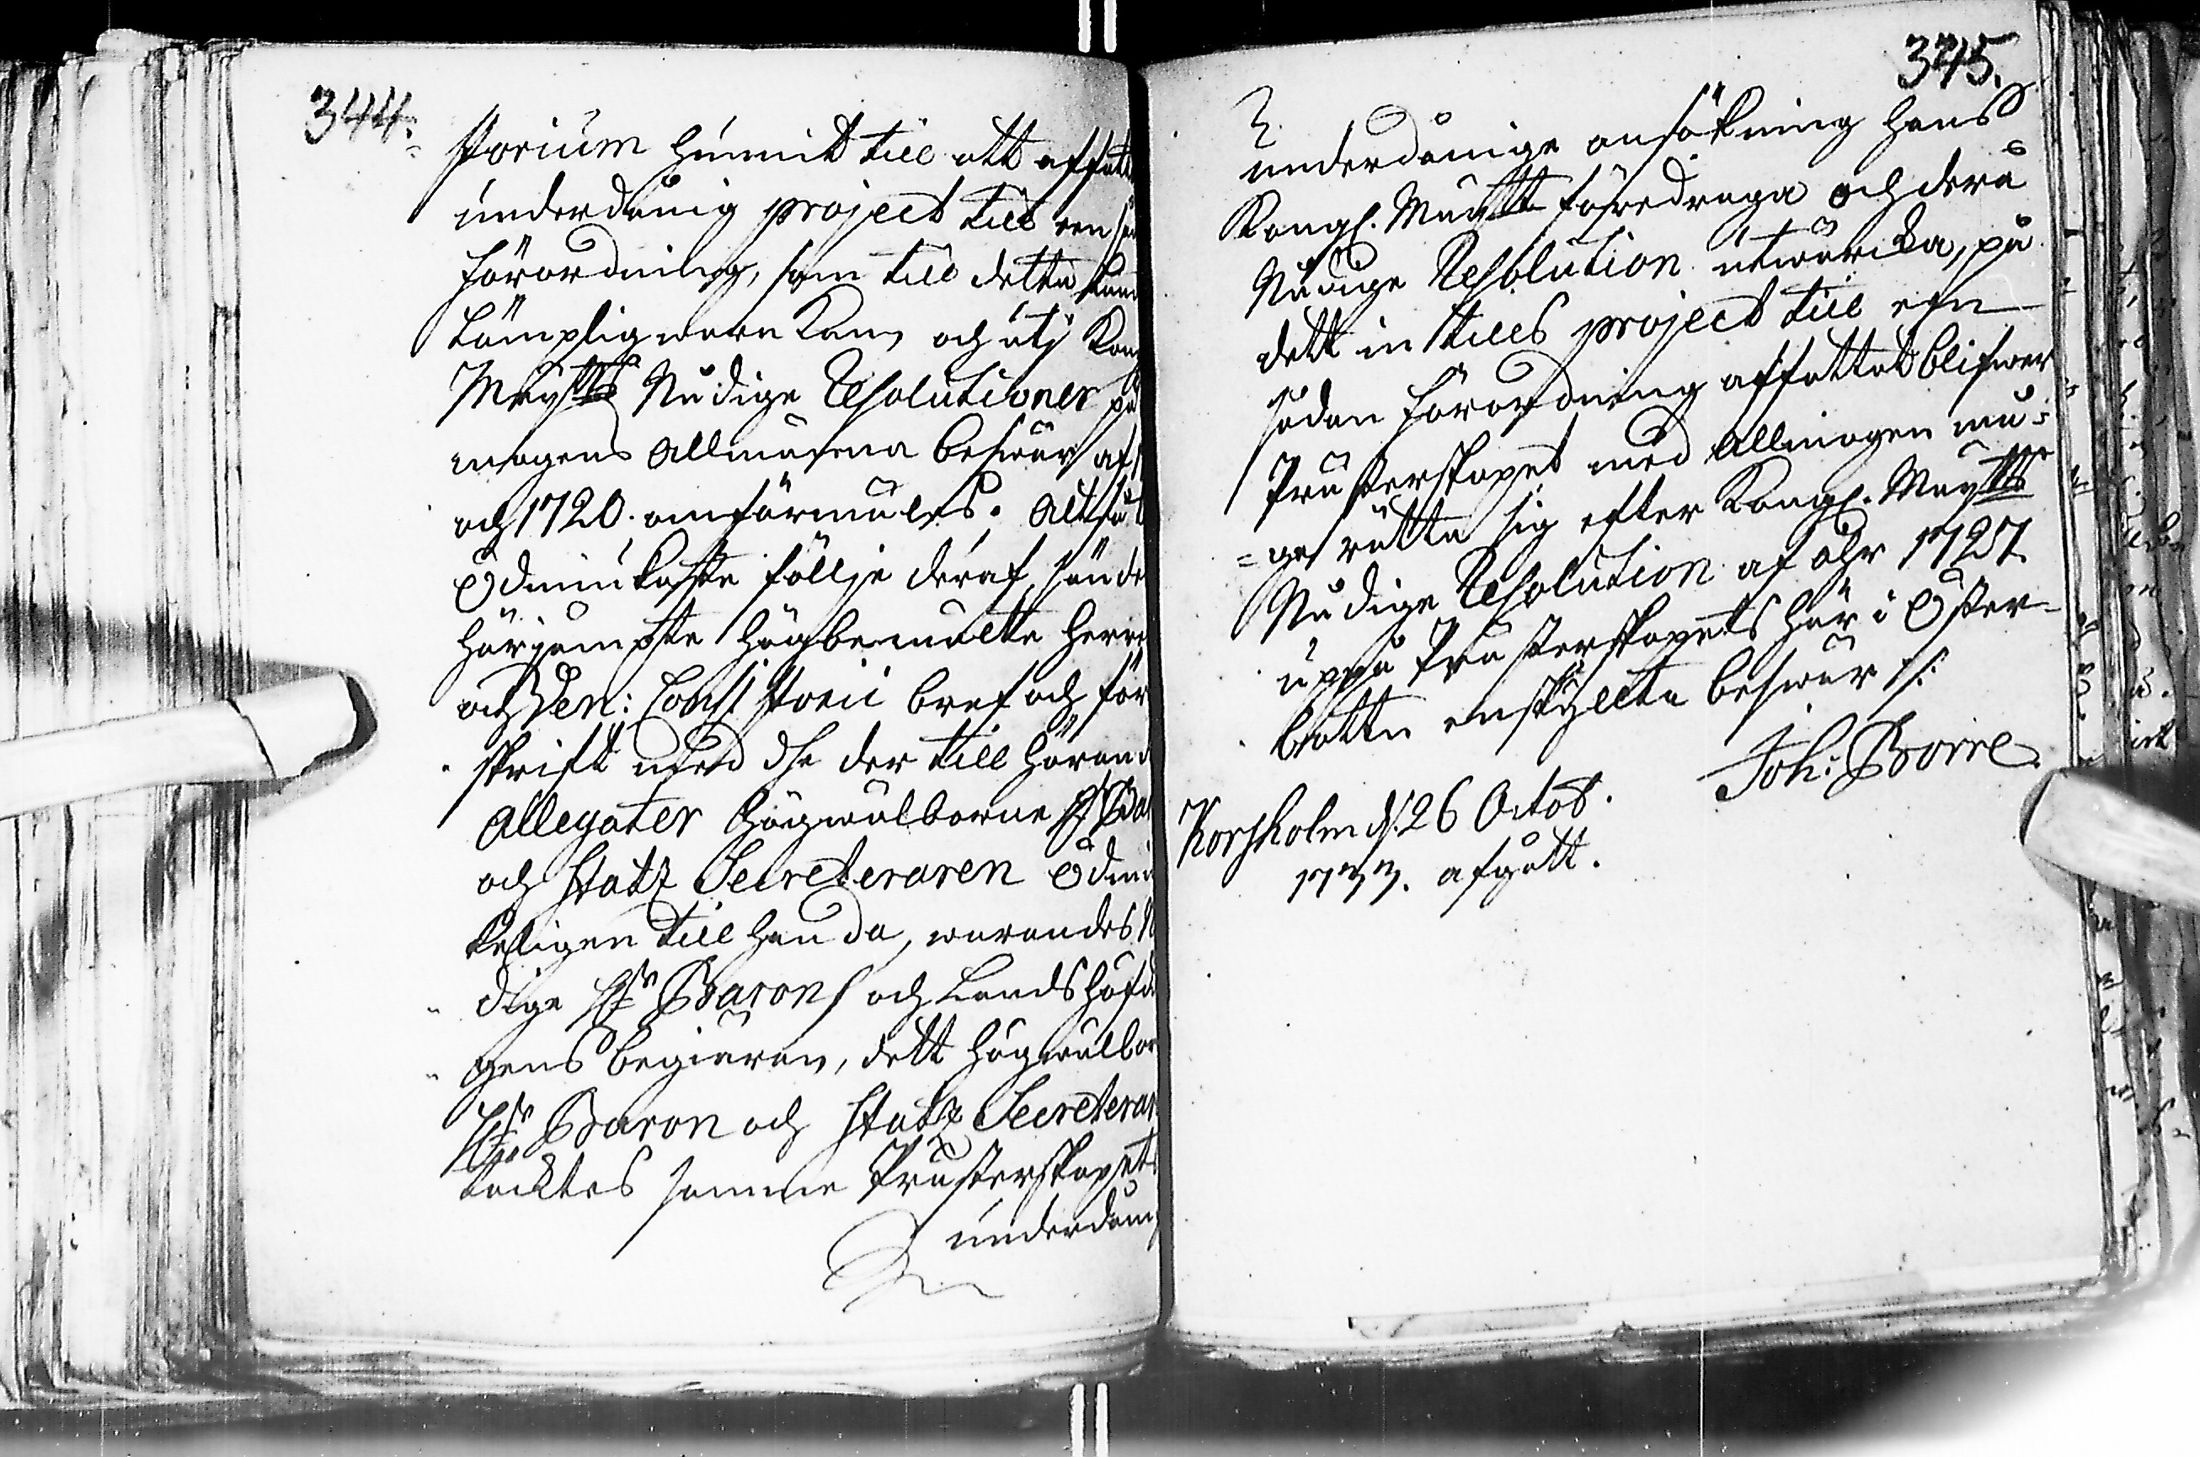 344.
storium hunnit till att affatt
underdånig project till een så
förordning, som till detta
lämplig wara kan, och utj Kong
Maÿtts Nådige Resolutioner på
mogens allmänna beswär af
och 1720. omförmäles. Altså
Ödmiukaste föllje deraf, sände
härjämpte högbemälte herr
och Ven: Consistorii bref och för
skrift med dhe der till hörand
Allegater Högwälborne Hr Bar
och Stats Secreteraren Ödmiu
keligen till handa, warandes N
dige Hr Barons och Landshöfd
gens begiäran, dett Högwälbor
Hr Baron och Stats Secreterar
täcktes samma Prästerskapets
underdåni
345.
underdånige ansökning hans
Kongl. Maÿtt föredraga och derå
Nådige Resolution utwärcka, på
dett in tills project till een
sådan förordning affattat blifwer
Prästerskapet med Allmogen må-
=ge rätta sig efter Kongl. Maÿtts
Nådige Resolution af åhr 1727.
uppå Prästerskapets här i Öster-
botten enskÿlta beswär /:
Joh: Borre
Korsholm d. 26 Octob.
1733. afgått.